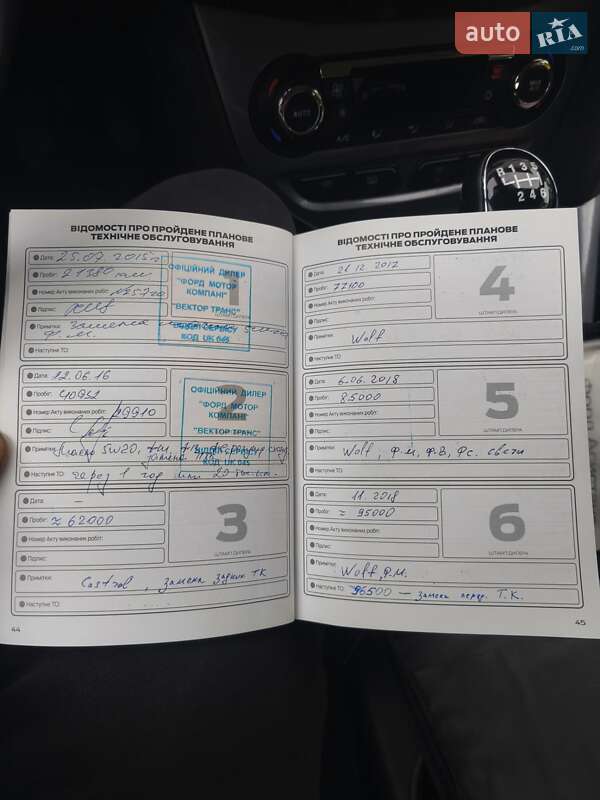 auto RIA.com
AUTO
A/C
R 1 3 5
2 4 6
ВІДОМОСТІ ПРО ПРОЙДЕНЕ ПЛАНОВЕ
ТЕХНІЧНЕ ОБСЛУГОВУВАННЯ
Дата: 25.07.2015г
Пробіг: 21580 км
Номер Акту виконаних робіт:
Підпис:
Примітки: Замена
Ф.М.
Наступне ТО:
1
ОФІЦІЙНИЙ ДИЛЕР
"ФОРД МОТОР
КОМПАНІ"
"ВЕКТОР ТРАНС"
ВІДДІЛ СЕРВІСУ
КОД UK 045
Дата: 22.06.16
Пробіг: 40952
Номер Акту виконаних робіт:
Підпис:
Примітки: 5W20,
Наступне ТО: через 1 год или
2
ОФІЦІЙНИЙ ДИЛЕР
"ФОРД МОТОР
КОМПАНІ"
"ВЕКТОР ТРАНС"
ВІДДІЛ СЕРВІСУ
КОД UK 045
Дата: –
Пробіг: ≈ 62000
Номер Акту виконаних робіт:
Підпис:
Примітки: Castrol, Замена задних ТК
Наступне ТО:
3
ШТАМП ДИЛЕРА
44
ВІДОМОСТІ ПРО ПРОЙДЕНЕ ПЛАНОВЕ
ТЕХНІЧНЕ ОБСЛУГОВУВАННЯ
Дата: 21.12.2017
Пробіг: 77100
Номер Акту виконаних робіт:
Підпис:
Примітки: Wolf
Наступне ТО:
4
ШТАМП ДИЛЕРА
Дата: 6.06.2018
Пробіг: 85000
Номер Акту виконаних робіт:
Підпис:
Примітки: Wolf, Ф.М, Ф.В, Фс. свечи
Наступне ТО:
5
ШТАМП ДИЛЕРА
Дата: 11.2018
Пробіг: ≈ 95000
Номер Акту виконаних робіт:
Підпис:
Примітки: Wolf, Ф.М.
Наступне ТО: 96500 – Замена перед. Т.К.
6
ШТАМП ДИЛЕРА
45